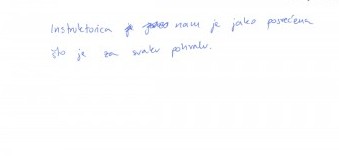 Instruktorica nam je jako posvećena
što je za svaku pohvalu.